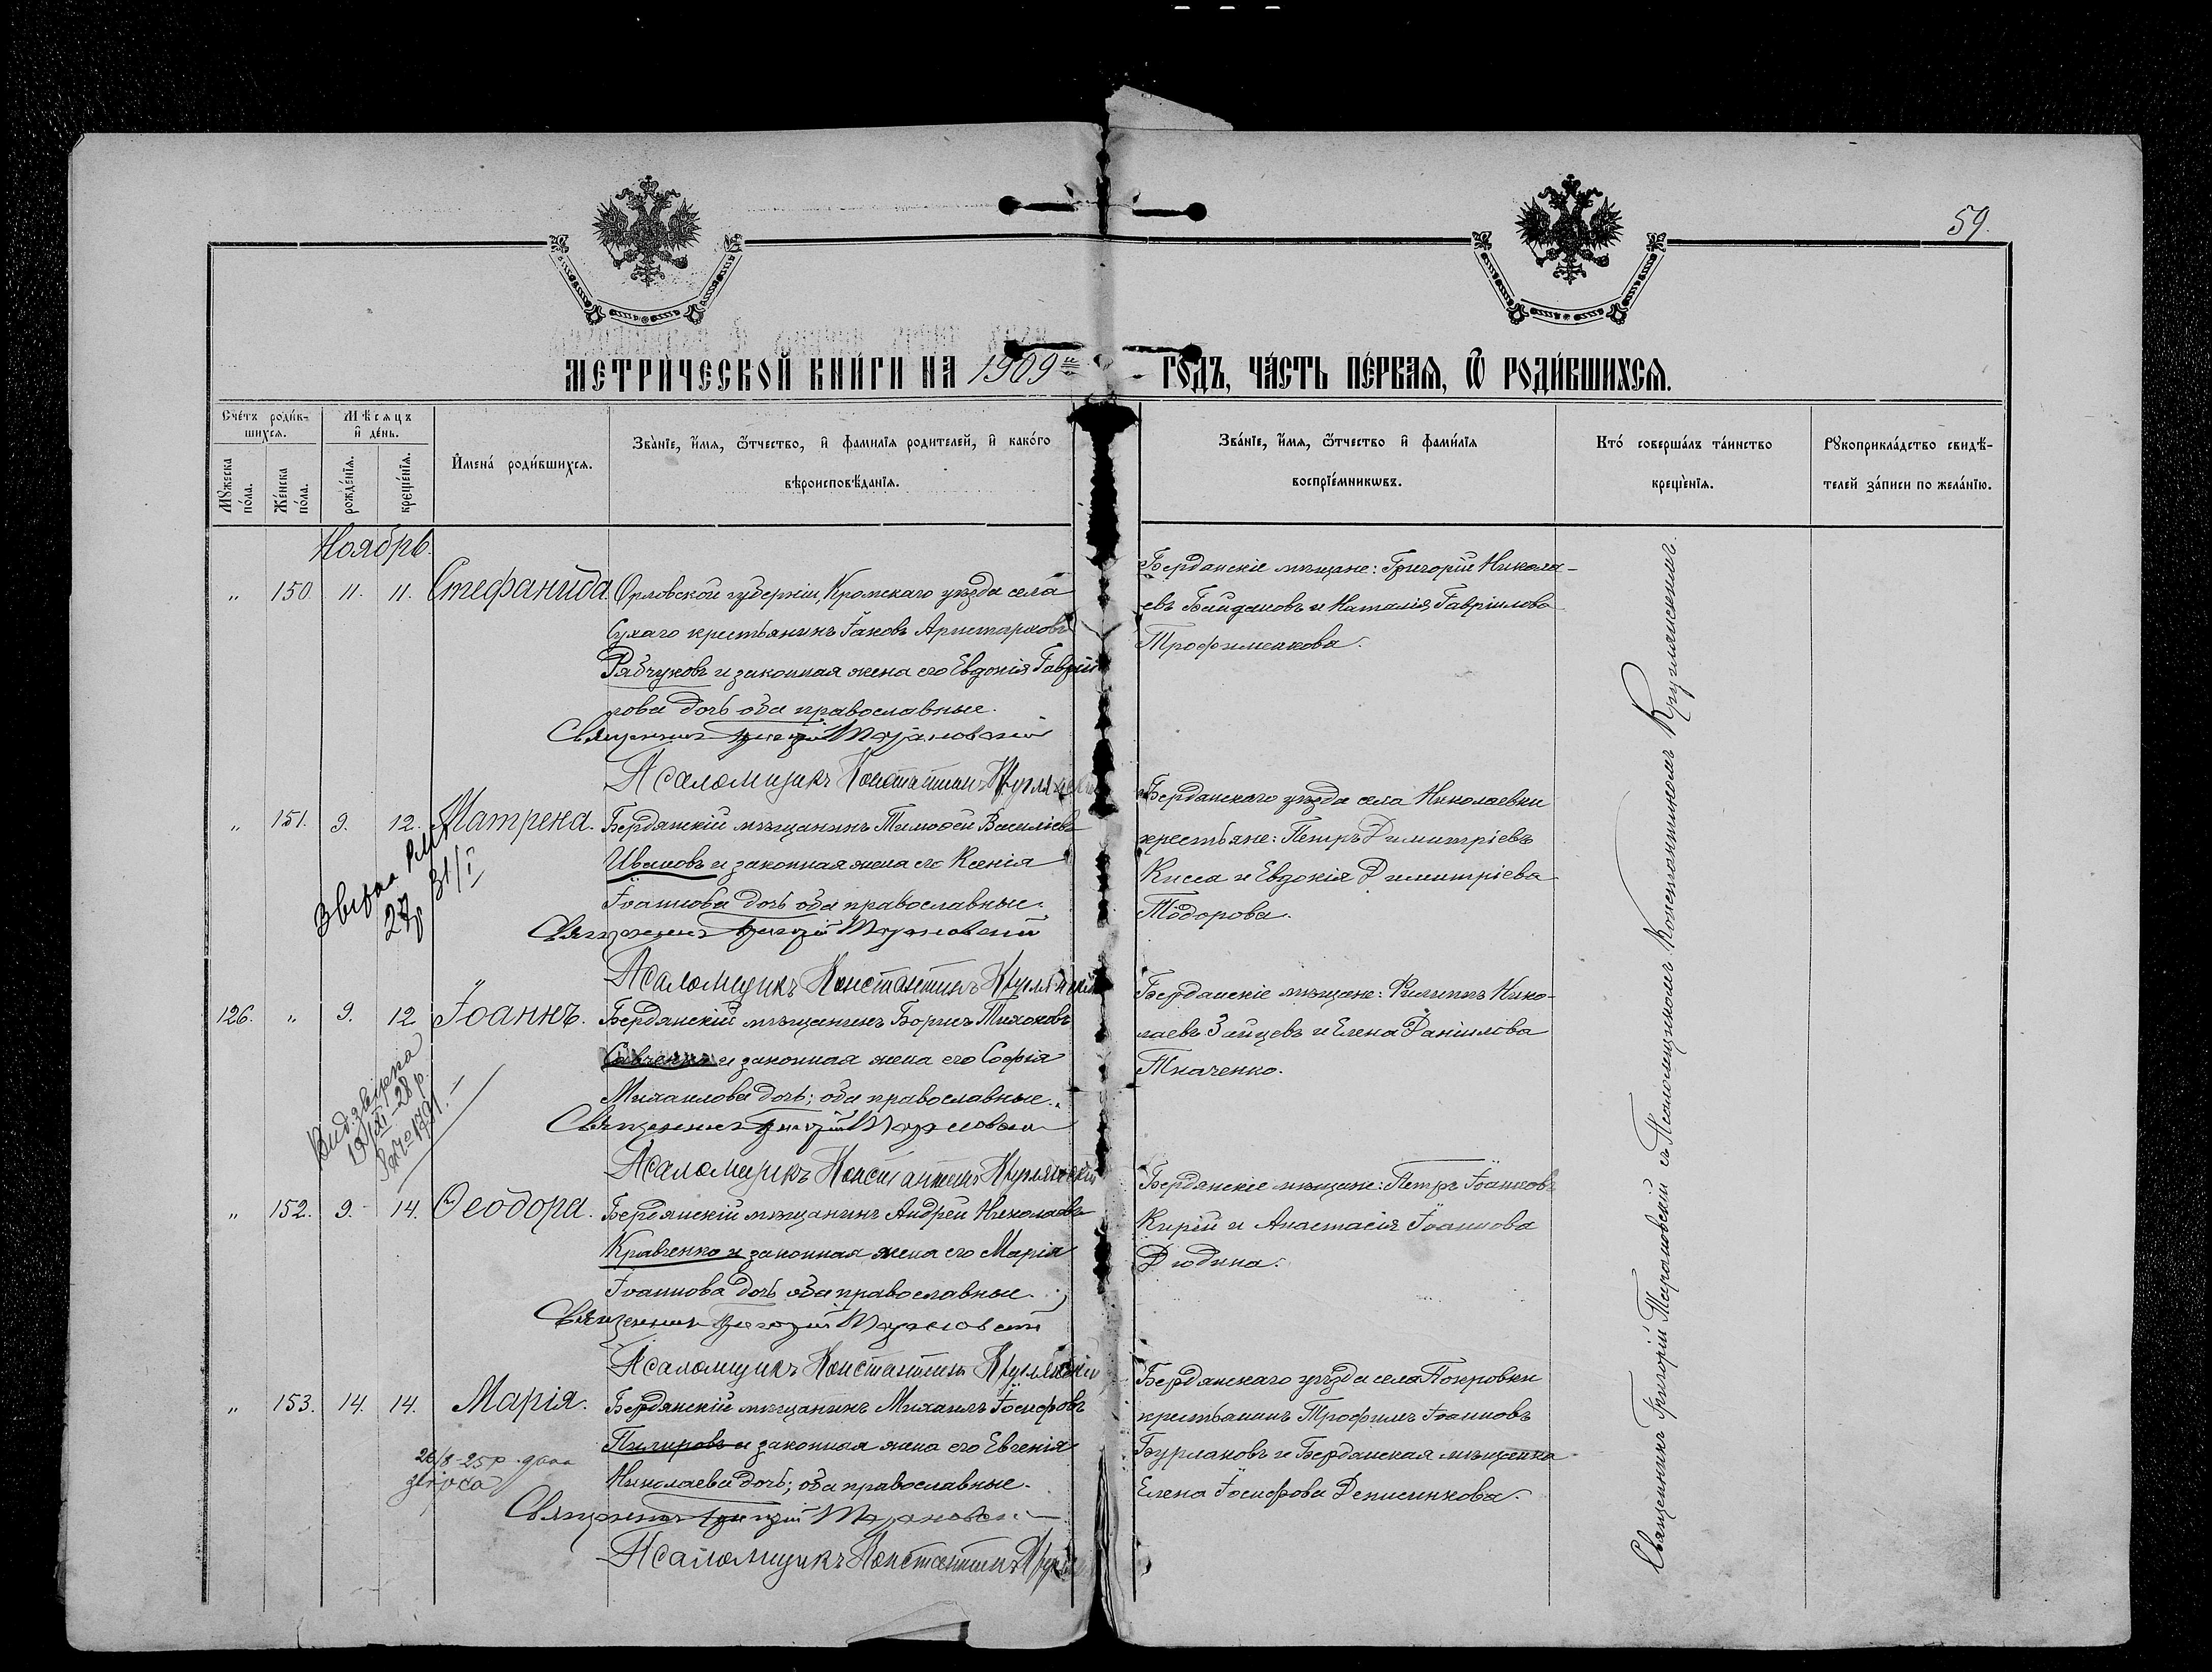 59.
МЕТРИЧЕСКОЙ КНИГИ НА 1909й ГОДЪ, ЧАСТЬ ПЕРВАЯ, Ѿ РОДИВШИХСЯ.
Счетъ родив-
шихся.
Мѣсяцъ
и день.
Мужеска
пола.
Женска
пола.
рожденія.
крещенія.
Имена родившихся.
Званіе, имя, ѿтчество, и фамилія родителей, и какого
вѣроисповѣданія.
Званіе, имя, ѿтчество и фамилія
воспріемникѡвъ.
Кто совершалъ таинство
крещенія.
Рукоприкладство свидѣ-
телей записи по желанію.
Ноябрь.
„ 150. 11. 11. Стефанида. Орловской губерніи, Кромскаго уѣзда села
Сухаго крестьянинъ Іаковъ Аристарховъ
Рябчуковъ и законная жена его Евдокія
дочь оба православные.
Священникъ Григорій Тарановскій
Псаломщикъ Константинъ Круглянскій
Бердянскіе мѣщане: Григорій Никола-
евъ Байдаковъ и Наталія Гавріилова
Трофименкова.
„ 151. 9. 12. Матрена. Бердянскій мѣщанинъ Тимоѳей Василіевъ
Ивановъ и законная жена его Ксенія
Іоаннова дочь оба православные.
Священникъ Григорій Тарановскій
Псаломщикъ Константинъ Круглянскій
31/I
27р
Бердянскаго уѣзда села Николаевки
крестьяне: Петръ Димитріевъ
Кисса и Евдокія Димитріева
Тодорова.
126. „ 9. 12 Іоаннъ. Бердянскій мѣщанинъ Борисъ Тихоновъ
Савченко и законная жена его Софія
Михаилова дочь; оба православные.
Священникъ Григорій Тарановскій
Псаломщикъ Константинъ Круглянскій
28 р.
Бердянскіе мѣщане: Филиппъ Нико-
лаевъ Зайцевъ и Елена Даніилова
Ткаченко.
„ 152. 9. 14. Ѳеодора. Бердянскій мѣщанинъ Андрей Николаевъ
Кравченко и законная жена его Марія
Іоаннова дочь оба православные.
Священникъ Григорій Тарановскій
Псаломщикъ Константинъ Круглянскій
Бердянскіе мѣщане: Петръ Іоанновъ
Кирій и Анастасія Іоаннова
Дюдина.
„ 153. 14. 14. Марія. Бердянскій мѣщанинъ Михаилъ Іосифовъ
и законная жена его Евгенія
Николаева дочь; оба православные.
Священникъ Григорій Тарановскій
Псаломщикъ Константинъ
26/8-25р
Бердянскаго уѣзда села Покровки
крестьянинъ Трофимъ Іоанновъ
Бурлаковъ и Бердянская мѣщанка
Елена Іосифова Денисенкова.
Священникъ Григорій Тарановскій съ Псаломщикомъ Константиномъ Круглянскимъ.